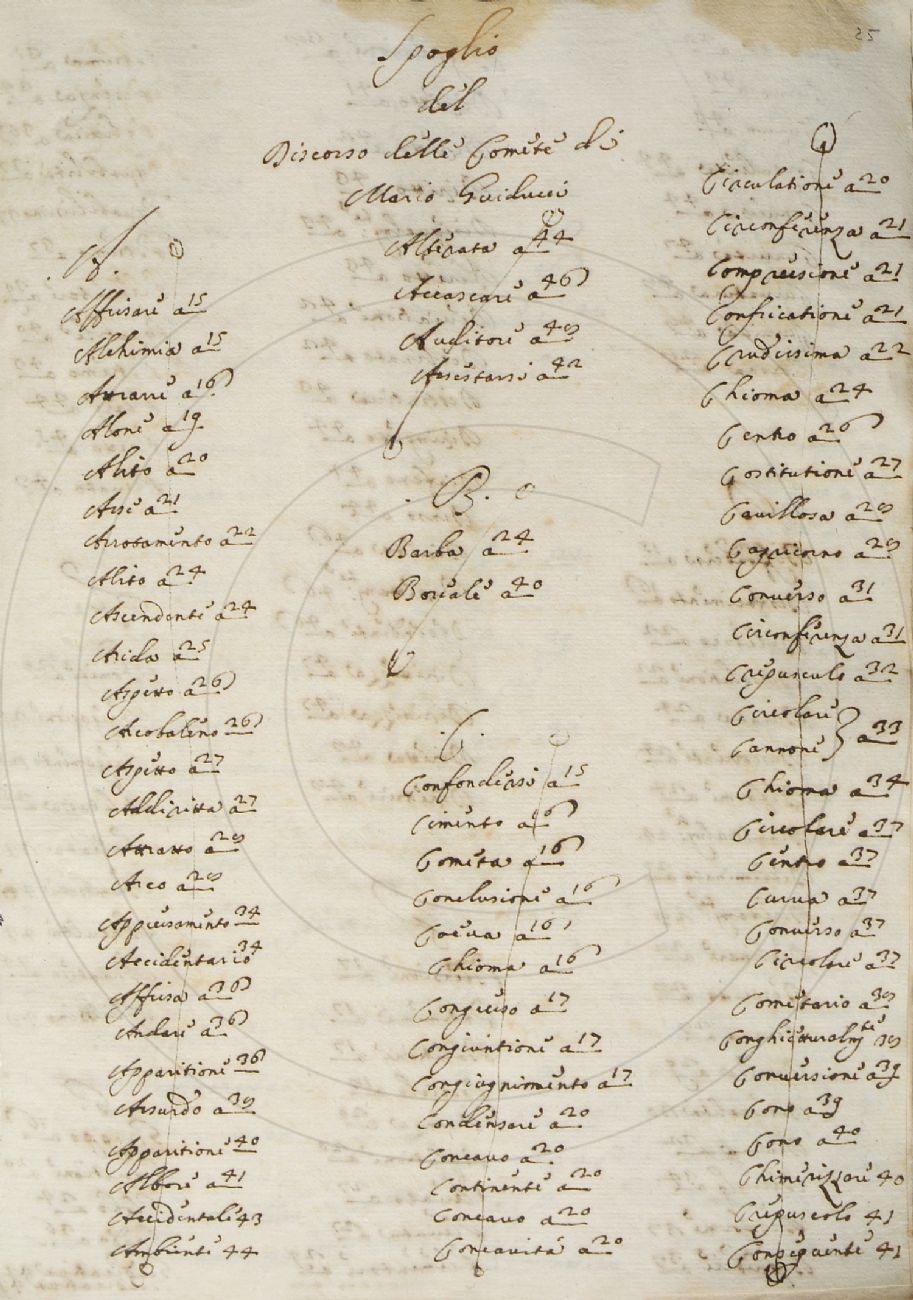 25
Spoglio
del
Discorso delle Comete di
Mario Guiducci
.A.
Affisare a 15
Alchimia a 15
Attrarre a 16
Alone a 19
Alito a 20
Arse a 21
Arrotamento a 22
Alito a 24
Ascendente a 24
Arida a 25
Aspetto a 26
Arcobaleno 26
Aspetto a 27
Addiritta a 27
Attratto a 28
Arco a 28
Appressamento 34
Accidentario 34
Affisa a 36
Andare a 36
Apparitione 36
Assurdo a 38
Apparitione 40
Albore a 41
Accidentale 43
Ambiente 44
Alterata a 44
Accascare a 46
Auditore a 48
Assestarsi a 42
.B.
Barba a 24
Boreale a 40
.C.
Confondersi a 15
Cimento a 16
Cometa a 16
Conclusione a 16
Coeva a 16
Chioma a 16
Congresso a 17
Congiuntione a 17
Congiugnimento a 17
Condensare a 20
Concavo a 20
Continente a 20
Concavo a 20
Concavità a 20
Circulatione a 20
Circonferenza a 21
Compressione a 21
Confricatione a 21
Crudissima a 22
Chioma a 24
Centro a 26
Costitutione a 27
Cavillosa a 28
Capricorno a 28
Converso a 31
Circonferenza a 31
Crepusculo a 32
Circolare
Cannone } a 33
Chioma a 34
Circolare a 37
Centro a 37
Curva a 37
Converso a 37
Circolare a 37
Cometario a 38
Conghietturalmte 38
Conversione a 39
Cono a 39
Cono a 40
Chimerizzare 40
Crepuscolo 41
Conseguente 41